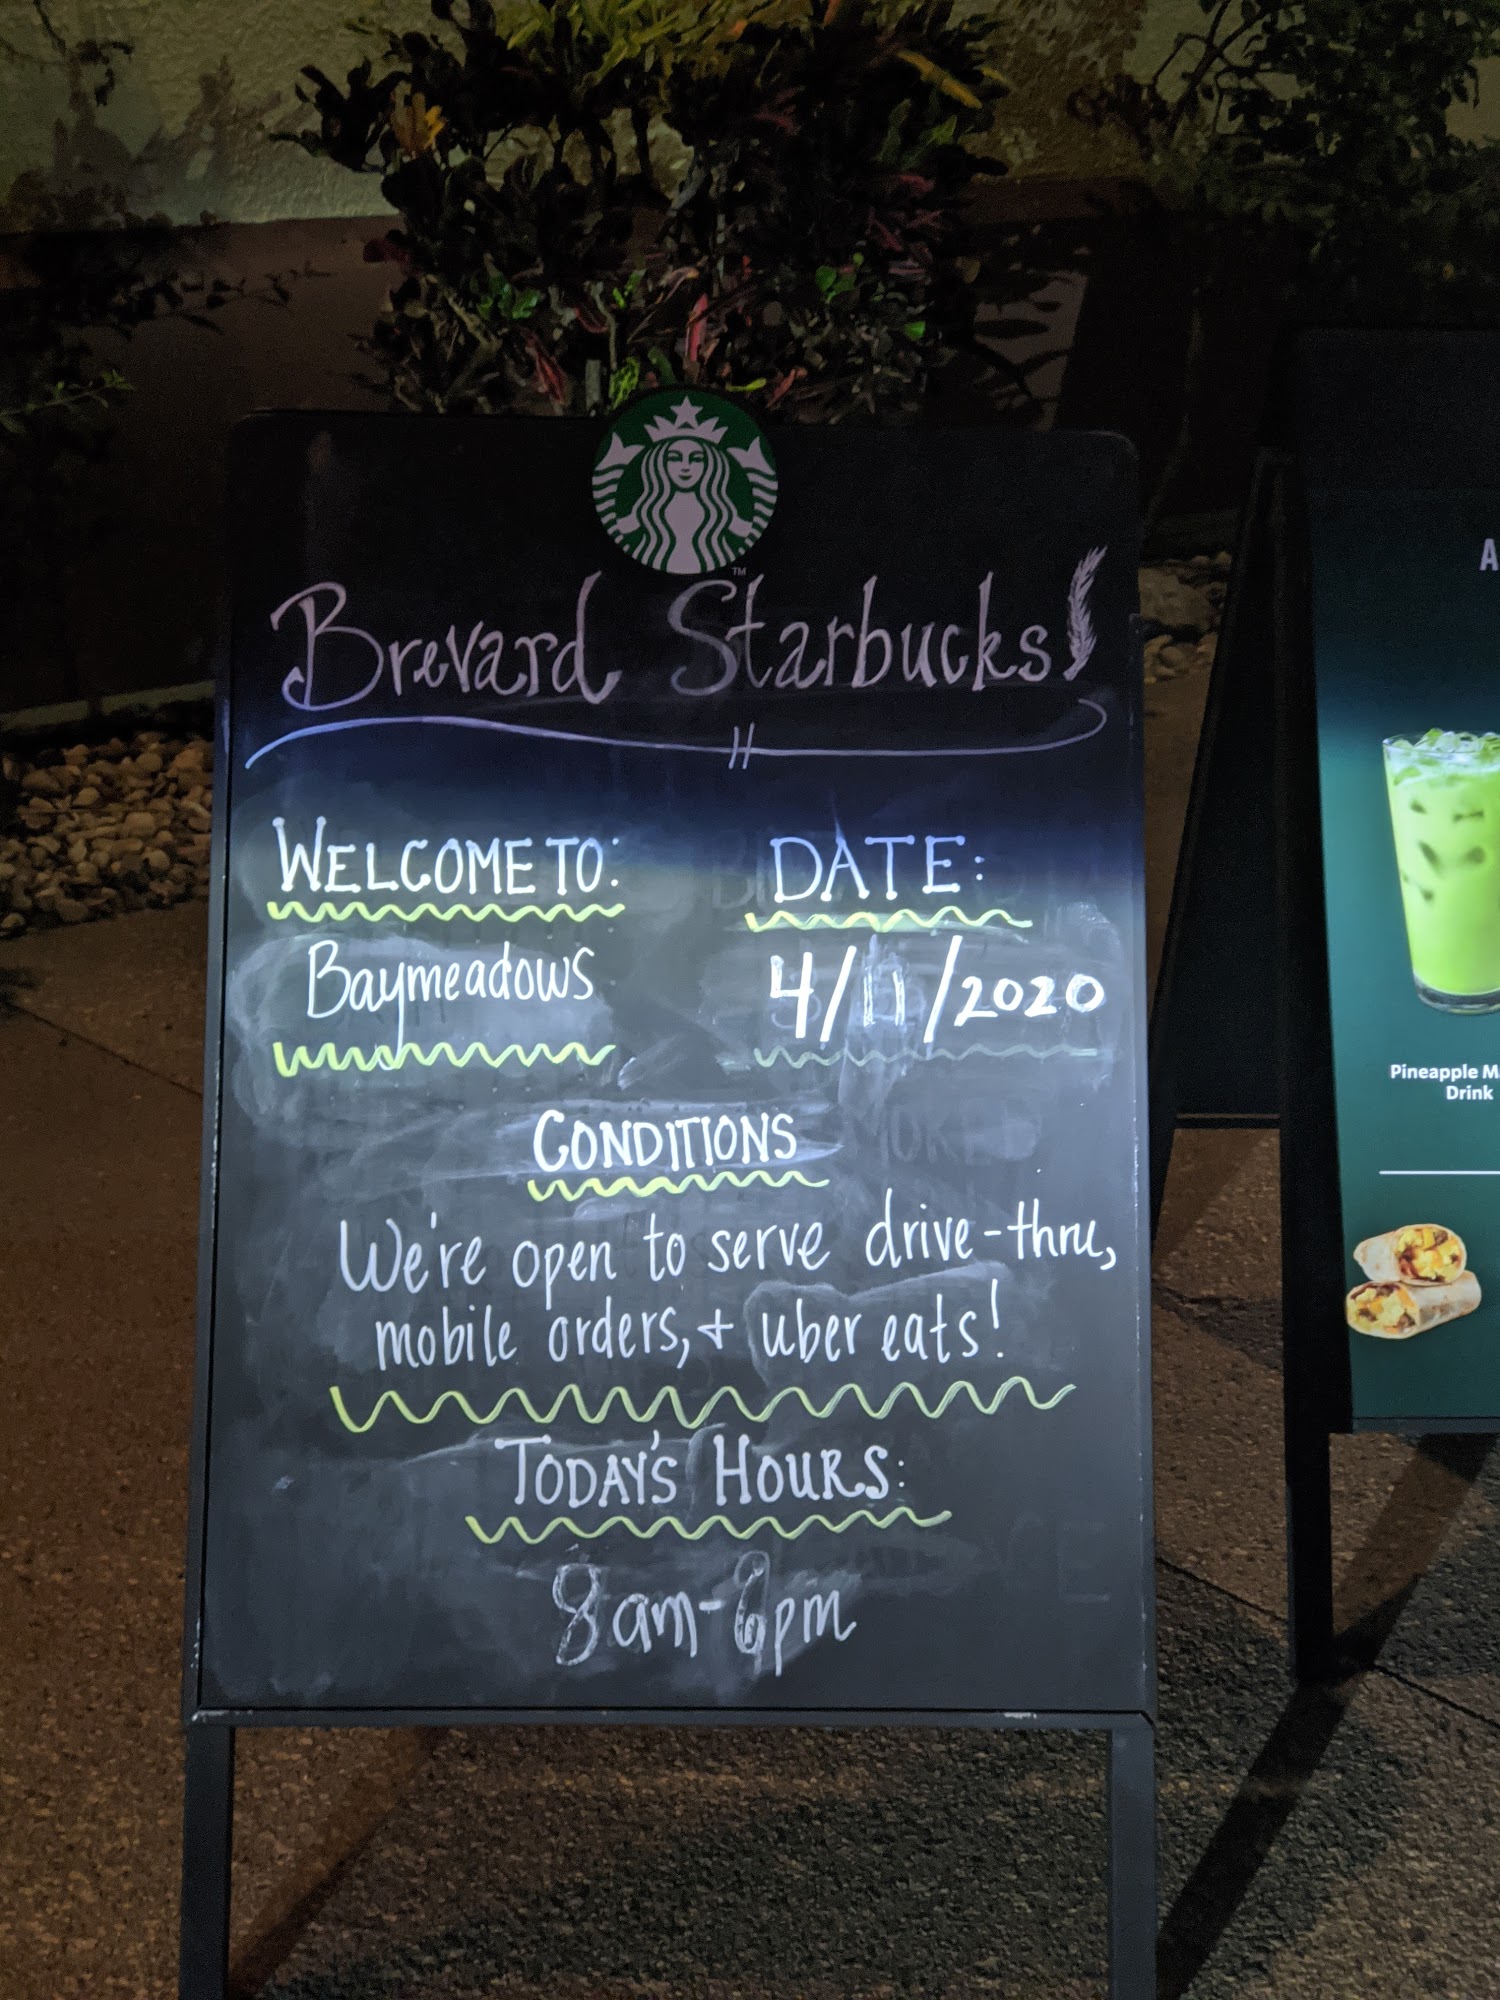 TM
Brevard Starbucks!
WELCOME TO:
Baymeadows
DATE:
4/11/2020
CONDITIONS
We're open to serve drive-thru,
mobile orders, + uber eats!
TODAY'S HOURS:
8am-6pm
A
Pineapple Ma
Drink